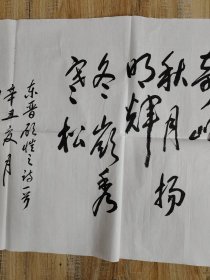 奇峰
秋月扬
明輝
冬嶺秀
寒松
东晋顾恺之诗一首
辛丑夏月